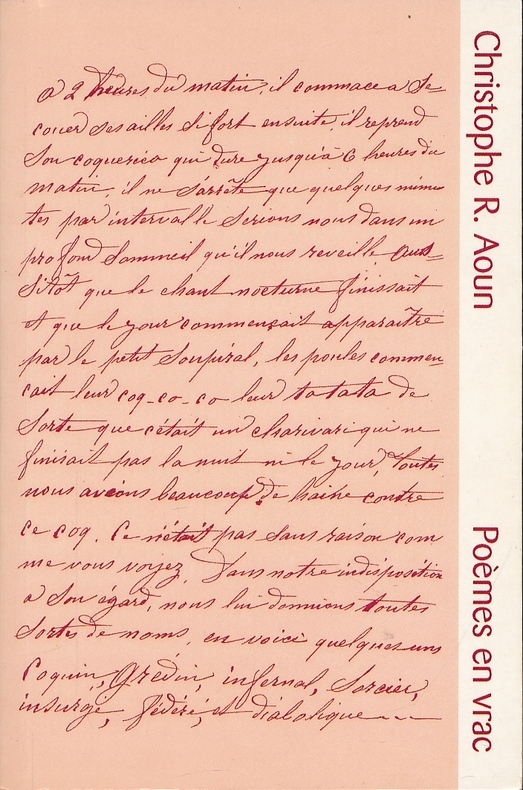 a 2 heures du matin, il commace a Se=
couer ses ailles si fort ensuite, il reprend
Son coquerico qui dure jusqu'à 6 heures du
matin, il ne s'arrête que quelques minu
tes par intervalle Serions nous dans un
profond Sommeil qu'il nous reveille aus=
Sitôt que le chant nocturne finissait
et que le jour commençait apparaître
par le petit Soupiral, les poules commen=
cait leur coq-co-co leur ta ta ta de
Sorte que c'était un charivari qui ne
finisait pas la nuit ni le jour, toutes
nous avions beaucoup de haine contre
ce coq. Ce n'était pas sans raison com
me vous voyez. Dans notre indisposition
a Son égard, nous lui donnions toutes
Sortes de noms, en voici quelques uns
Coquin, Gredin, infernal, Sorcier,
insurgé, fédéré, et diabolique
Christophe R. Aoun
Poèmes en vrac